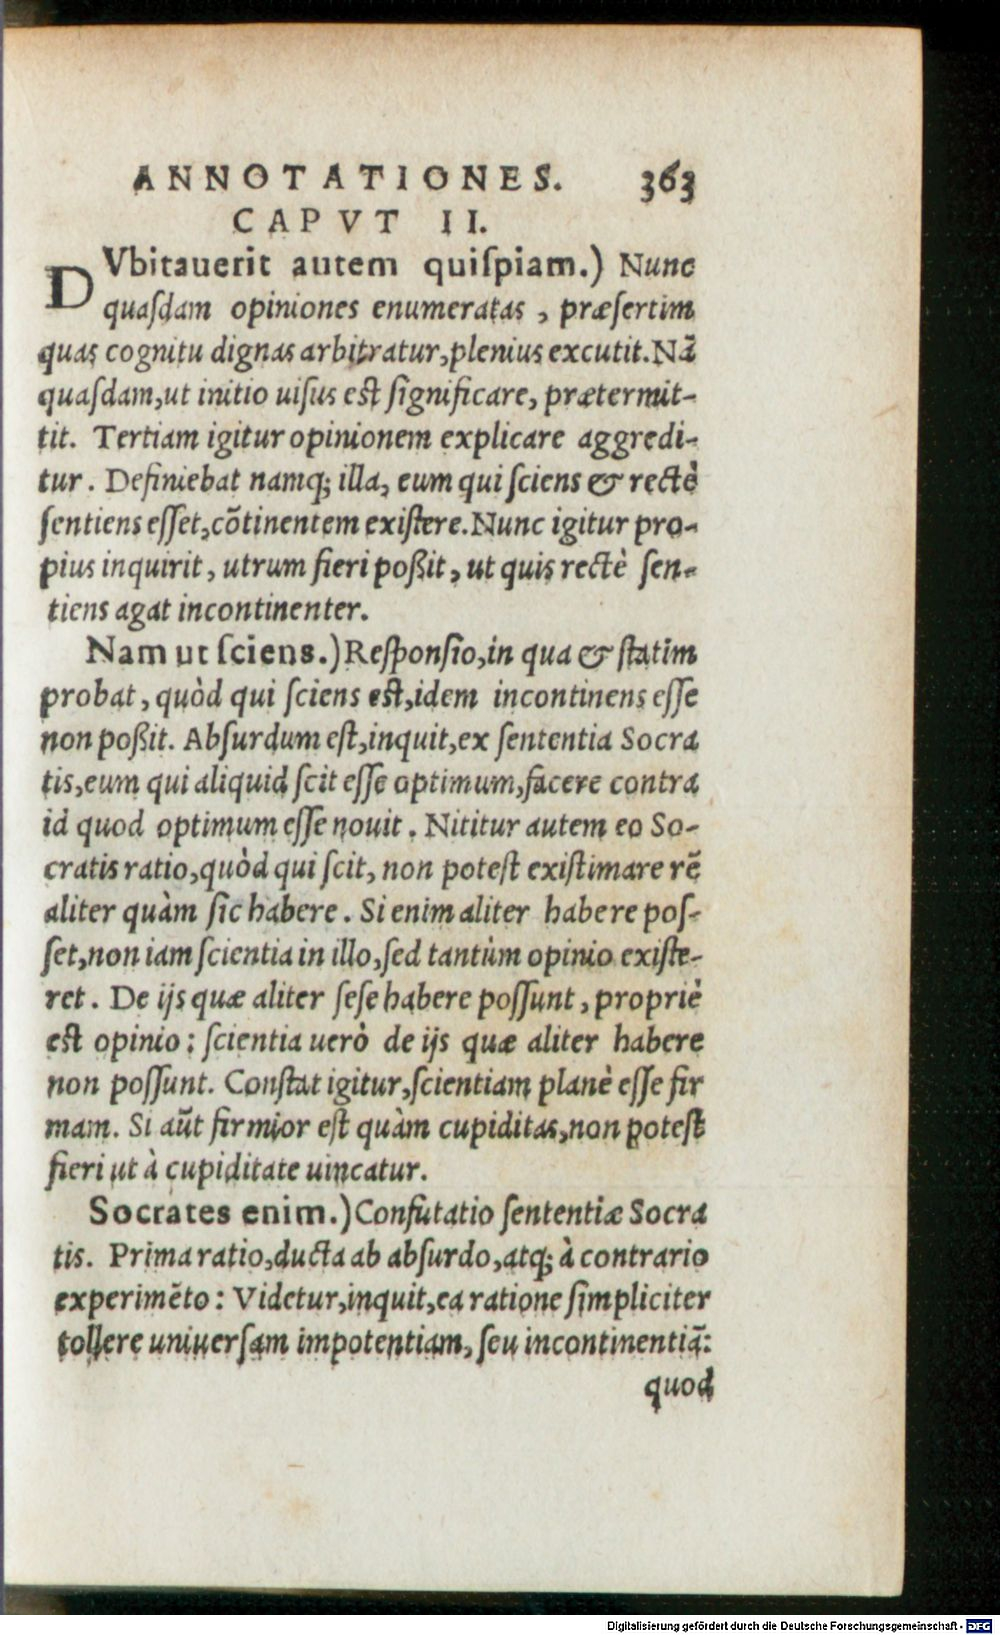 ANNOTATIONES. 363
CAPVT II.
DVbitauerit autem quiſpiam.) Nunc
quaſdam opiniones enumeratas, præſertim
quas cognitu dignas arbitratur, plenius excutit. Nā
quaſdam, ut initio uiſus eſt ſignificare, prætermit-
tit. Tertiam igitur opinionem explicare aggredi-
tur. Definiebat namq; illa, eum qui ſciens & rectè
ſentiens eſſet, cōtinentem exiſtere. Nunc igitur pro-
pius inquirit, utrum fieri poßit, ut quis rectè ſen-
tiens agat incontinenter.
Nam ut ſciens.) Reſponſio, in qua & ſtatim
probat, quòd qui ſciens eſt, idem incontinens eſſe
non poßit. Abſurdum eſt, inquit, ex ſententia Socra
tis, eum qui aliquid ſcit eſſe optimum, facere contra
id quod optimum eſſe nouit. Nititur autem eo So-
cratis ratio, quòd qui ſcit, non poteſt exiſtimare rē
aliter quàm ſic habere. Si enim aliter habere poſ-
ſet, non iam ſcientia in illo, ſed tantùm opinio exiſte-
ret. De ijs quæ aliter ſeſe habere poſſunt, propriè
eſt opinio: ſcientia uerò de ijs quæ aliter habere
non poſſunt. Conſtat igitur, ſcientiam planè eſſe fir
mam. Si aūt firmior eſt quàm cupiditas, non poteſt
fieri ut à cupiditate uincatur.
Socrates enim.) Confutatio ſententiæ Socra
tis. Prima ratio, ducta ab abſurdo, atq; à contrario
experimēto: Videtur, inquit, ea ratione ſimpliciter
tollere uniuerſam impotentiam, ſeu incontinentiā:
quod
Digitalisierung gefördert durch die Deutsche Forschungsgemeinschaft - DFG